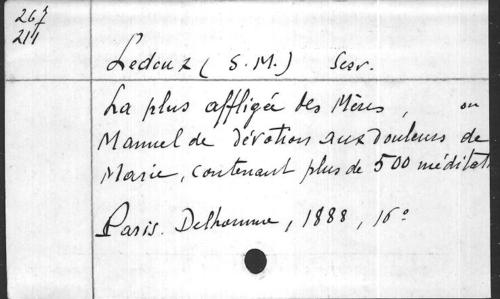 267
211
Ledoux (S. M.) Serv.
La plus affligée des Mères, ou
Manuel de dévotion aux douleurs de
Marie, contenant plus de 500 méditat
Paris. Delhomme, 1888, 16°